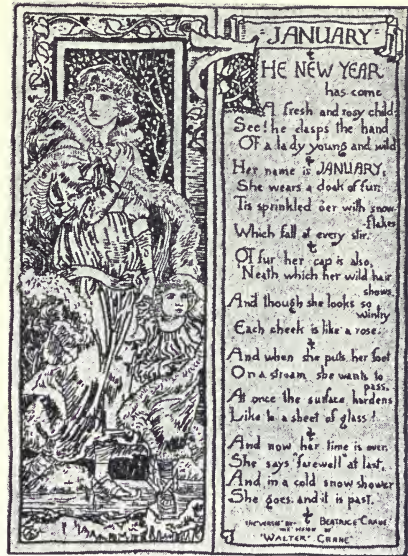 JANUARY
THE NEW YEAR
has come
A fresh and rosy child:
See! he clasps the hand
Of a lady young and wild
Her name is JANUARY,
She wears a cloak of fur:
Tis sprinkled o'er with snow
flakes
Which fall at every stir.
Of fur her cap is also,
Neath which her wild hair
shows
And though she looks so
wintry
Each cheek is like a rose.
And when she puts her foot
On a stream she wants to
pass,
At once the surface hardens
Like to a sheet of glass!
And now her time is over.
She says 'farewell' at last,
And in a cold snow shower
She goes, and it is past.
THE VERSE BY BEATRICE CRANE
THE DESIGN BY
WALTER CRANE